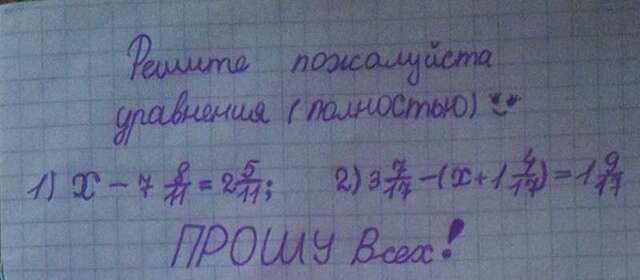 Решите пожалуйста
уравнения (полностью)
1) x - 7 8/11 = 2 5/11; 2) 3 7/17 - (x + 1 4/17) = 1 9/17
ПРОШУ Всех!